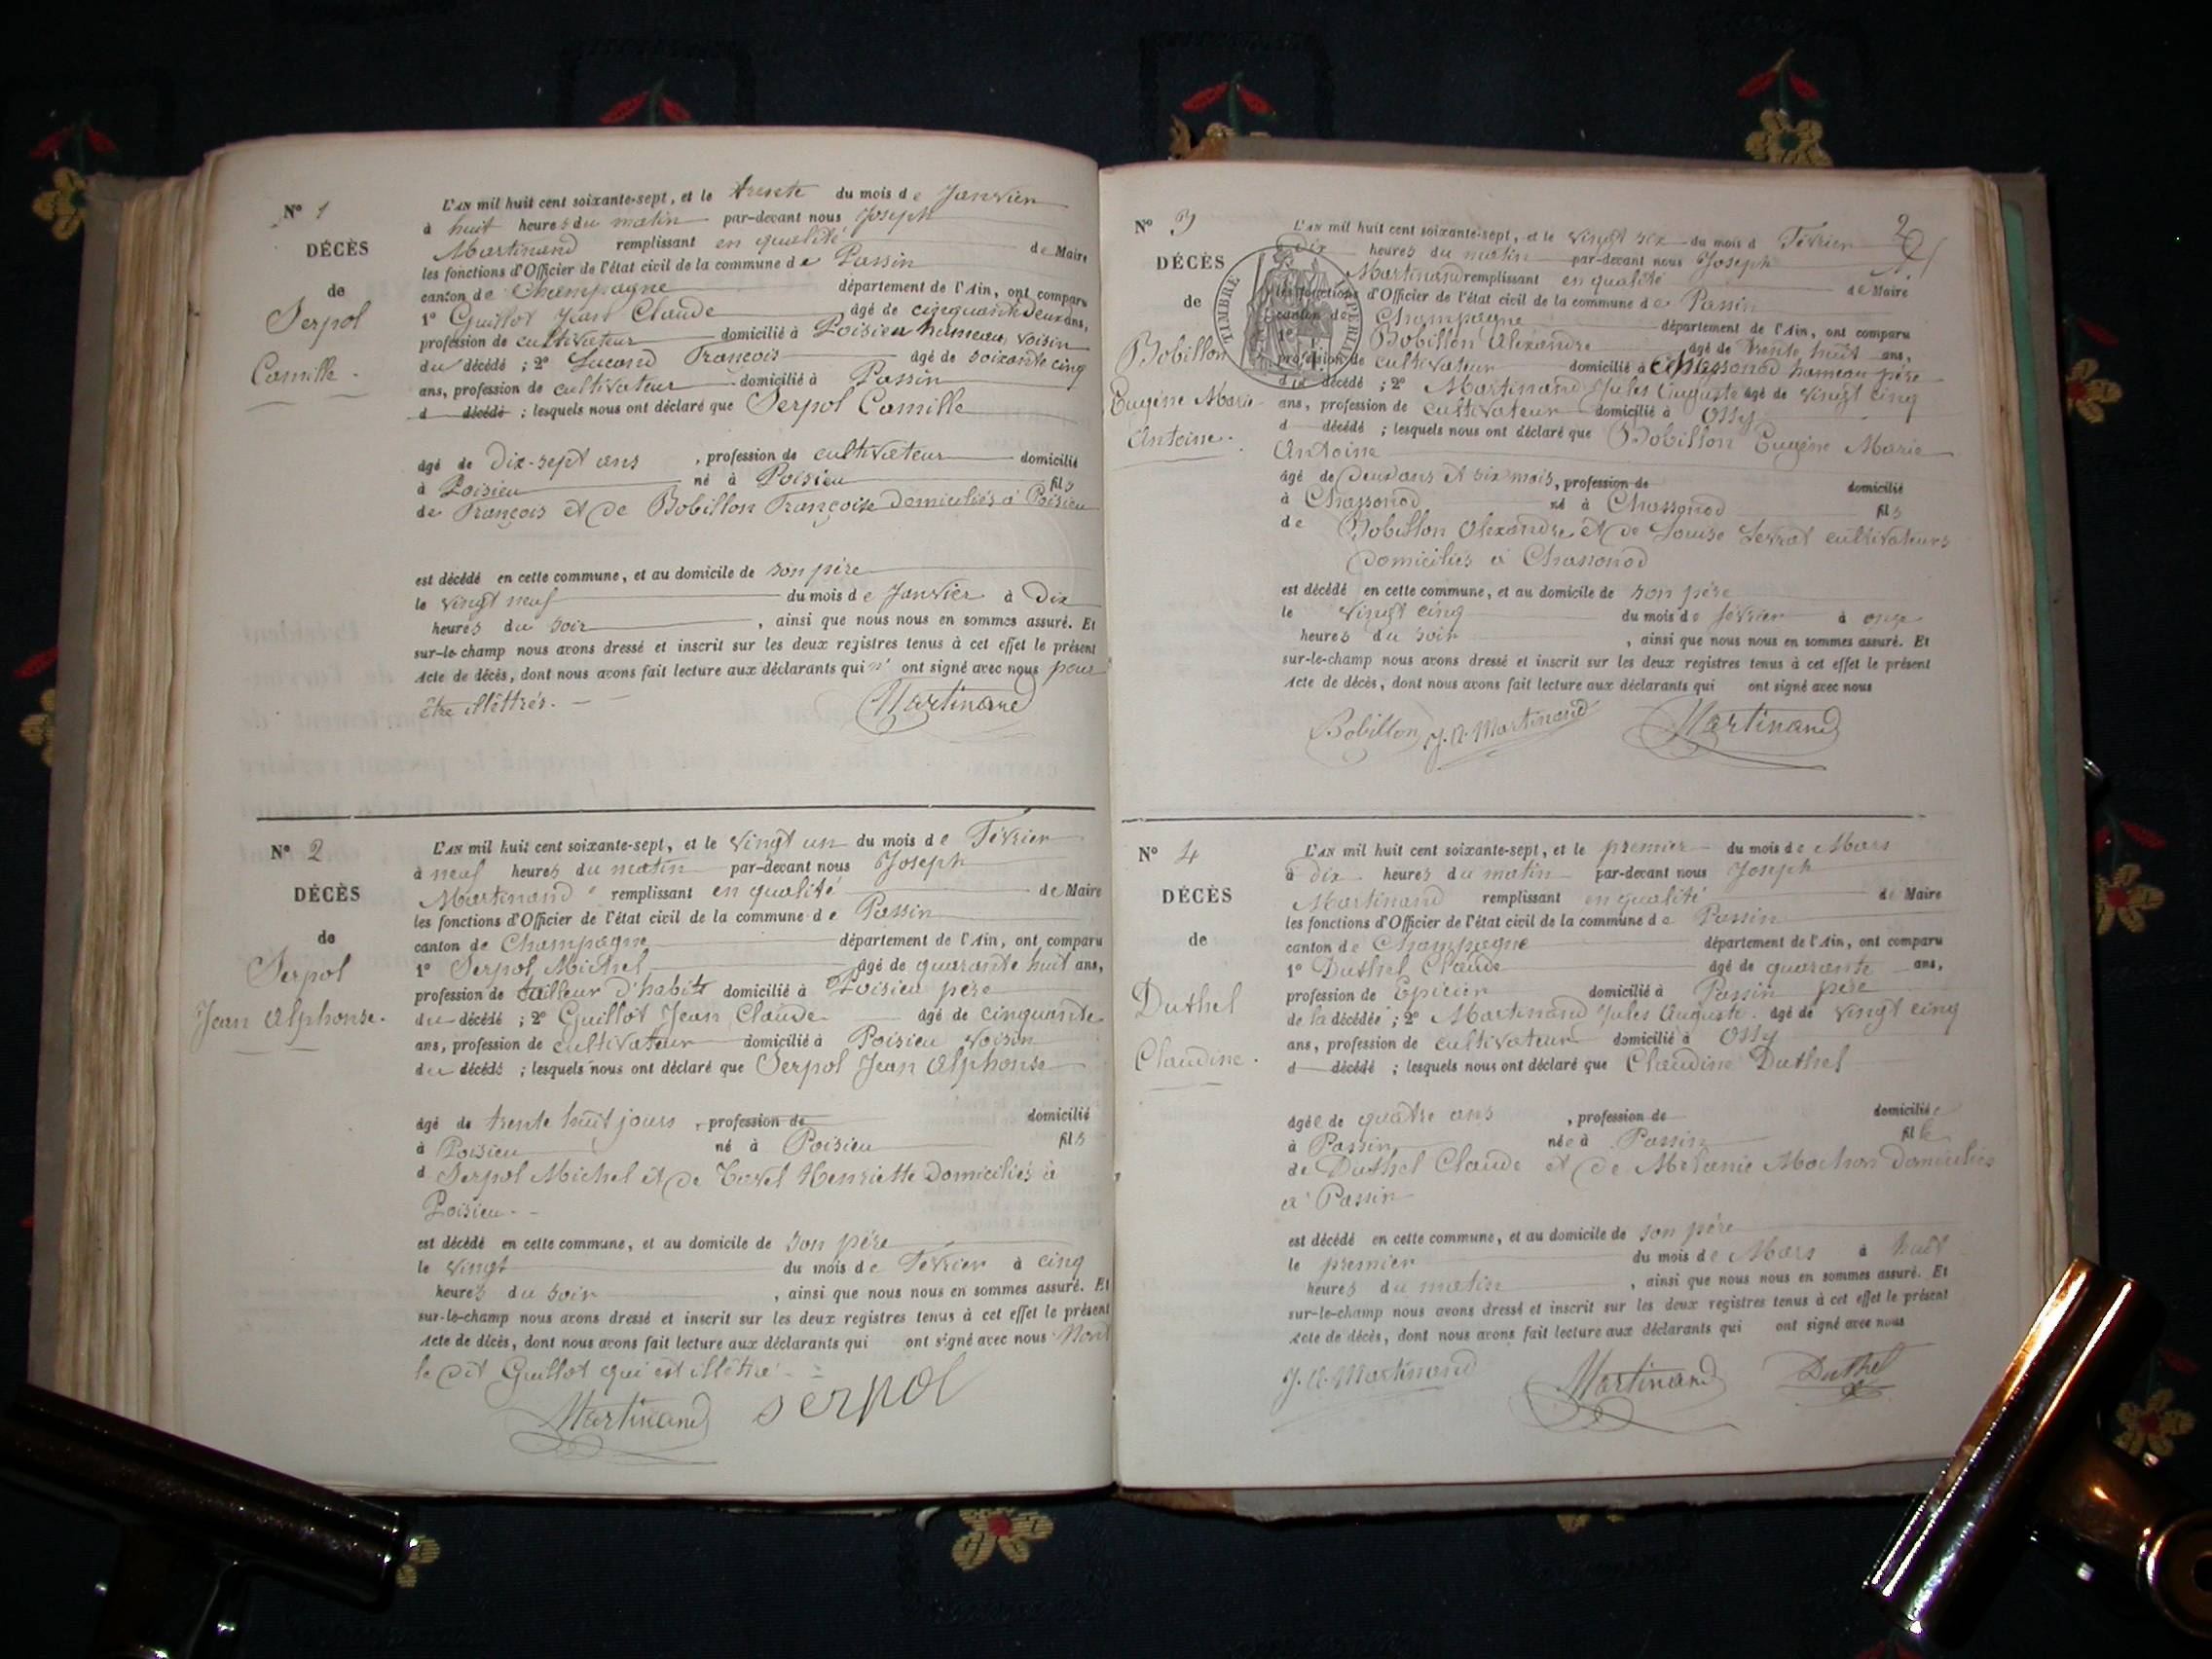 N° 1
DÉCÈS
de
Serpol
Camille.
L'AN mil huit cent soixante-sept, et le trente du mois de Janvier
à huit heures du matin par-devant nous Joseph
Martinand remplissant en qualité de Maire
les fonctions d'Officier de l'état civil de la commune de Passin
canton de Champagne département de l'Ain, ont comparu
1° Guillot Jean Claude âgé de cinquante deux ans,
profession de cultivateur domicilié à Poisieu hameau, voisin
du décédé ; 2° Lucand François âgé de soixante cinq
ans, profession de cultivateur domicilié à Passin
d décédé ; lesquels nous ont déclaré que Serpol Camille
âgé de dix-sept ans , profession de cultivateur domicilié
à Poisieu né à Poisieu fils
de François et de Bobillon Françoise domiciliés à Poisieu
est décédé en cette commune, et au domicile de son père
le vingt neuf du mois de Janvier à dix
heures du soir , ainsi que nous nous en sommes assuré. Et
sur-le-champ nous avons dressé et inscrit sur les deux registres tenus à cet effet le présent
Acte de décès, dont nous avons fait lecture aux déclarants qui n' ont signé avec nous pour
être illêttrés.
Martinand
N° 2
DÉCÈS
de
Serpol
Jean Alphonse.
L'AN mil huit cent soixante-sept, et le vingt un du mois de Février
à neuf heures du matin par-devant nous Joseph
Martinand remplissant en qualité de Maire
les fonctions d'Officier de l'état civil de la commune de Passin
canton de Champagne département de l'Ain, ont comparu
1° Serpol Michel âgé de quarante huit ans,
profession de tailleur d'habits domicilié à Poisieu père
du décédé ; 2° Guillot Jean Claude âgé de cinquante
ans, profession de cultivateur domicilié à Poisieu voisin
du décédé ; lesquels nous ont déclaré que Serpol Jean Alphonse
âgé de trente huit jours , profession de domicilié
à Poisieu né à Poisieu fils
d Serpol Michel et de Henriette domiciliés à
Poisieu.
est décédé en cette commune, et au domicile de son père
le vingt du mois de Février à cinq
heures du soir , ainsi que nous nous en sommes assuré. Et
sur-le-champ nous avons dressé et inscrit sur les deux registres tenus à cet effet le présent
Acte de décès, dont nous avons fait lecture aux déclarants qui ont signé avec nous
le dit Guillot qui est illêttré.
Martinand serpol
2
N° 3
DÉCÈS
de
Bobillon
Eugène Marie
Antoine.
TIMBRE
L'AN mil huit cent soixante-sept, et le vingt six du mois d Février
à Dix heures du matin par-devant nous Joseph
Martinand remplissant en qualité de Maire
les fonctions d'Officier de l'état civil de la commune de Passin
canton de Champagne département de l'Ain, ont comparu
1° Bobillon Alexandre âgé de trente huit ans,
profession de cultivateur domicilié à Chassonod hameau père
du décédé ; 2° Martinand Jules Auguste âgé de vingt cinq
ans, profession de cultivateur domicilié à Ossy
d décédé ; lesquels nous ont déclaré que Bobillon Eugène Marie
Antoine
âgé de deux ans et six mois, profession de domicilié
à Chassonod né à Chassonod fils
de Bobillon Alexandre et de Louise cultivateurs
domiciliés à Chassonod
est décédé en cette commune, et au domicile de son père
le vingt cinq du mois de février à onze
heures du soir , ainsi que nous nous en sommes assuré. Et
sur-le-champ nous avons dressé et inscrit sur les deux registres tenus à cet effet le présent
Acte de décès, dont nous avons fait lecture aux déclarants qui ont signé avec nous
Bobillon J. A. Martinand Martinand
N° 4
DÉCÈS
de
Duthel
Claudine.
L'AN mil huit cent soixante-sept, et le premier du mois de Mars
à dix heures du matin par-devant nous Joseph
Martinand remplissant en qualité de Maire
les fonctions d'Officier de l'état civil de la commune de Passin
canton de Champagne département de l'Ain, ont comparu
1° Duthel Claude âgé de quarante ans,
profession de Epicier domicilié à Passin père
de la décédée ; 2° Martinand Jules Auguste. âgé de vingt cinq
ans, profession de cultivateur domicilié à Ossy
d décédé ; lesquels nous ont déclaré que Claudine Duthel
âgée de quatre ans , profession de domiciliée
à Passin née à Passin fille
de Duthel Claude et de Melanie Mochon domiciliés
à Passin
est décédé en cette commune, et au domicile de son père
le premier du mois de Mars à huit
heures du matin , ainsi que nous nous en sommes assuré. Et
sur-le-champ nous avons dressé et inscrit sur les deux registres tenus à cet effet le présent
Acte de décès, dont nous avons fait lecture aux déclarants qui ont signé avec nous
J. A. Martinand Martinand Duthel